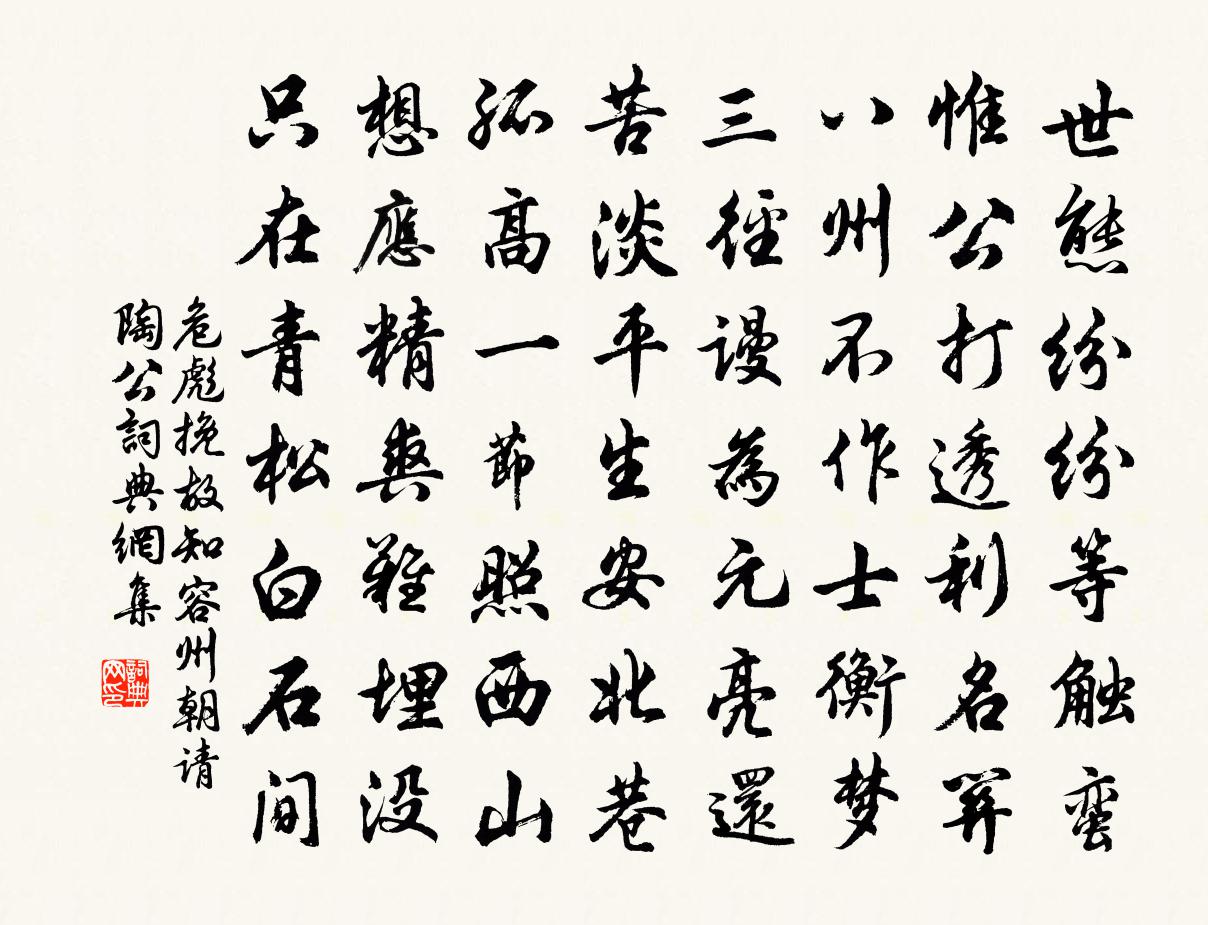 世態紛紛等触蛮
惟公打透利名関
八州不作士衡梦
三徑謾為元亮還
苦淡平生安北巷
孤高一節照西山
想應精爽難埋没
只在青松白石間
危彪挽故知容州朝请
陶公詞典網集
詞典网印